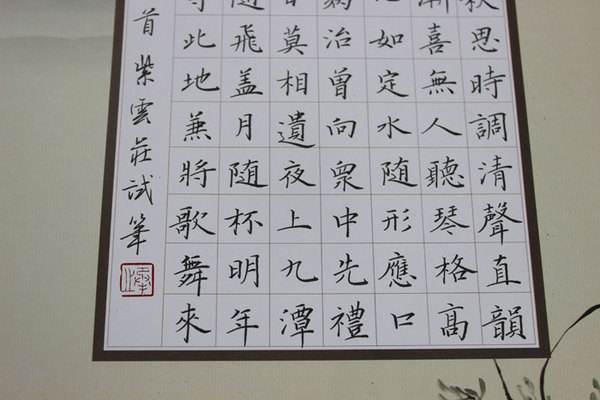 秋思時調清聲直韻
漸喜無人聽琴格高
心如定水隨形應口
病治曾向衆中先禮
日莫相遺夜上九潭
隨飛盖月隨杯明年
守此地兼將歌舞來
首紫雲莊試筆